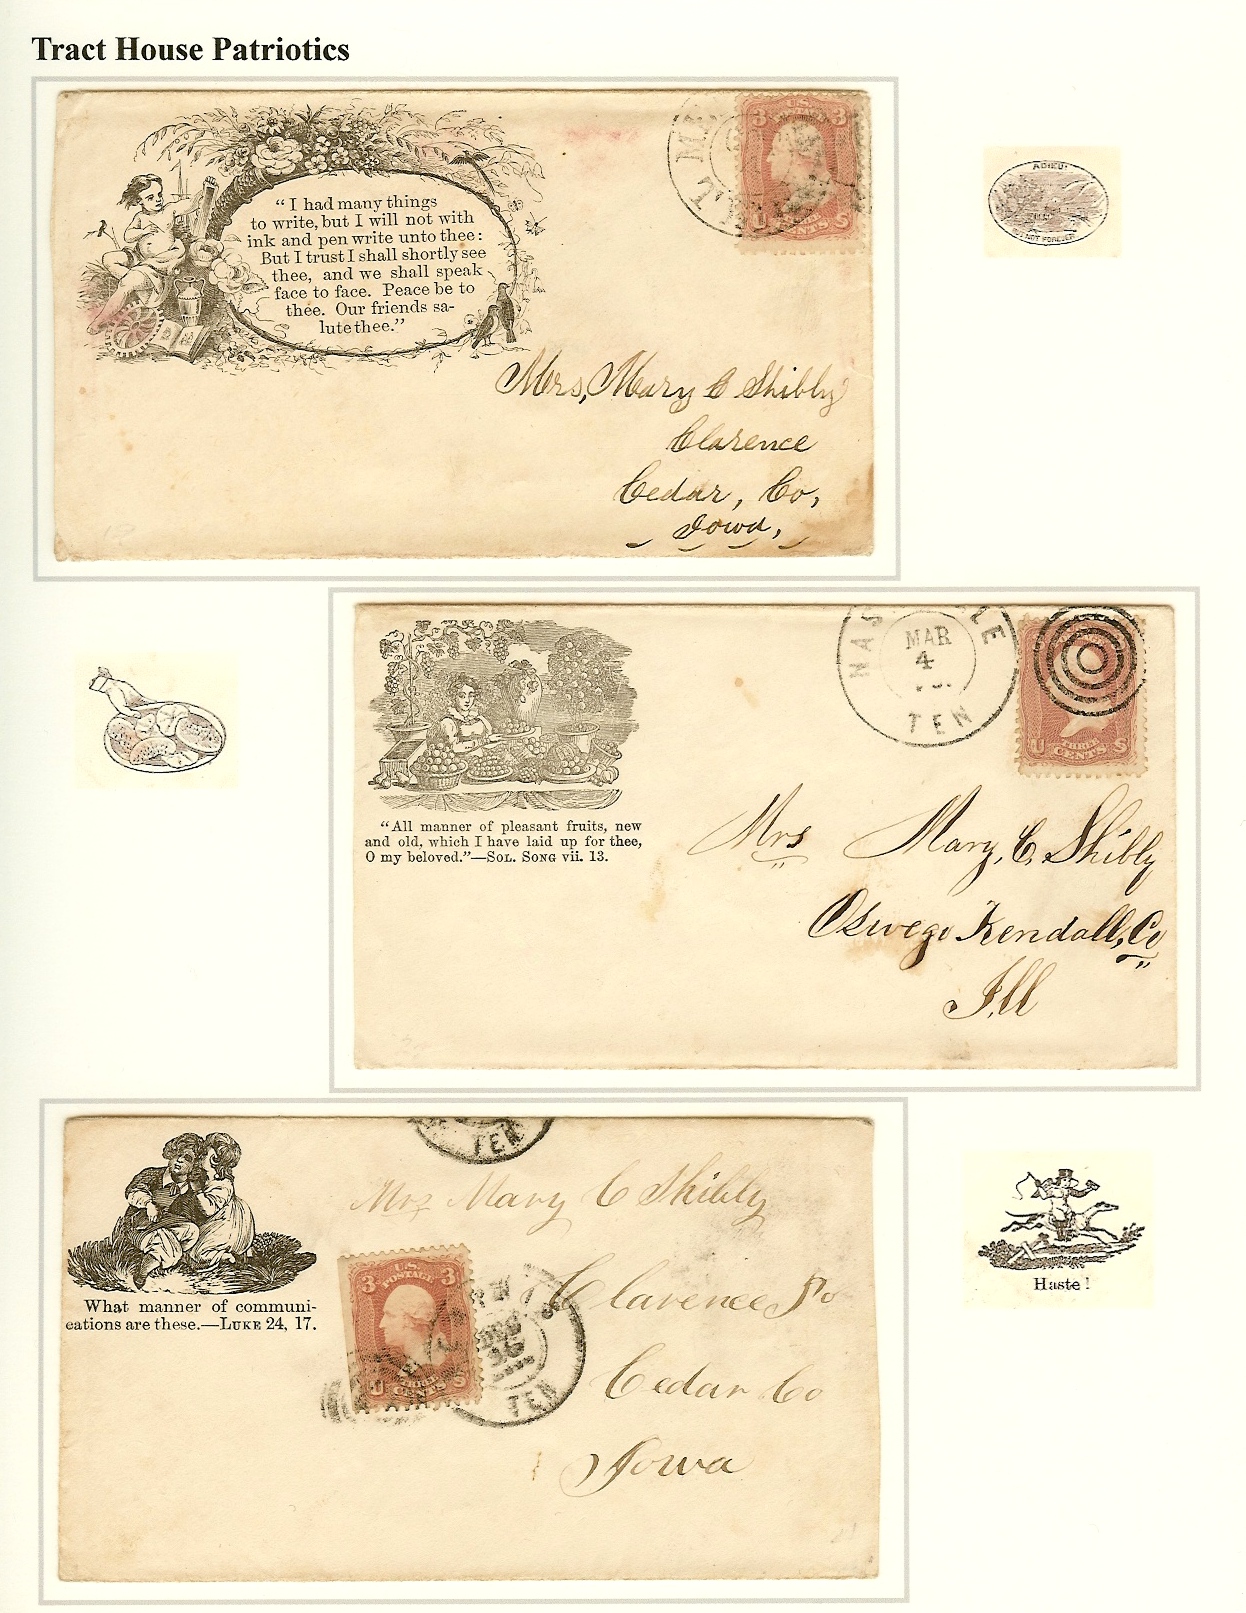 Tract House Patriotics
“I had many things
to write, but I will not with
ink and pen write unto thee:
But I trust I shall shortly see
thee, and we shall speak
face to face. Peace be to
thee. Our friends sa-
lute thee.”
U.S.
POSTAGE
3 3
U S
CENTS
Mrs, Mary C Shibly
Clarence
Cedar, Co,
Iowa,
ADIEU!
NOT FOREVER
MAR
4
TEN
U S
THREE
CENTS
“All manner of pleasant fruits, new
and old, which I have laid up for thee,
O my beloved.”—SOL. SONG vii. 13.
Mrs Mary, C, Shibly
Oswego Kendall, Co
Ill
TEN
Mrs Mary C Shibly
U.S.
POSTAGE
3 3
U S
THREE
CENTS
TEN
Clarence Po
Cedar Co
Iowa
What manner of communi-
cations are these.—LUKE 24, 17.
Haste!